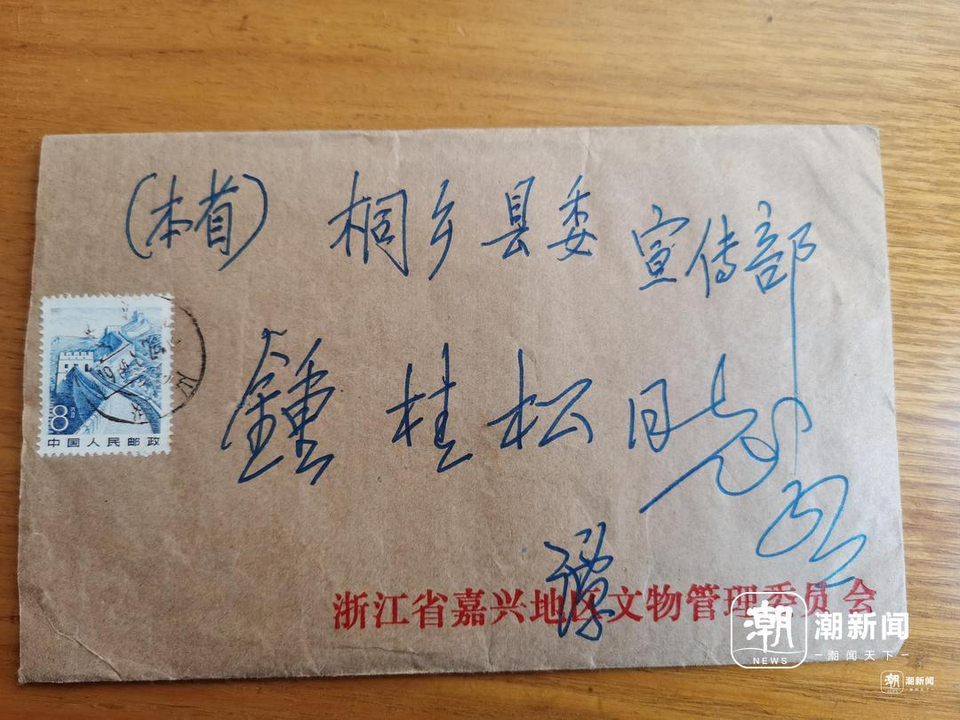 (本省) 桐乡县委 宣传部
鍾桂松同志
8分
中国人民邮政
浙江省嘉兴地区文物管理委员会
谭
潮 NEWS 潮新闻
潮闻天下
潮 潮新闻